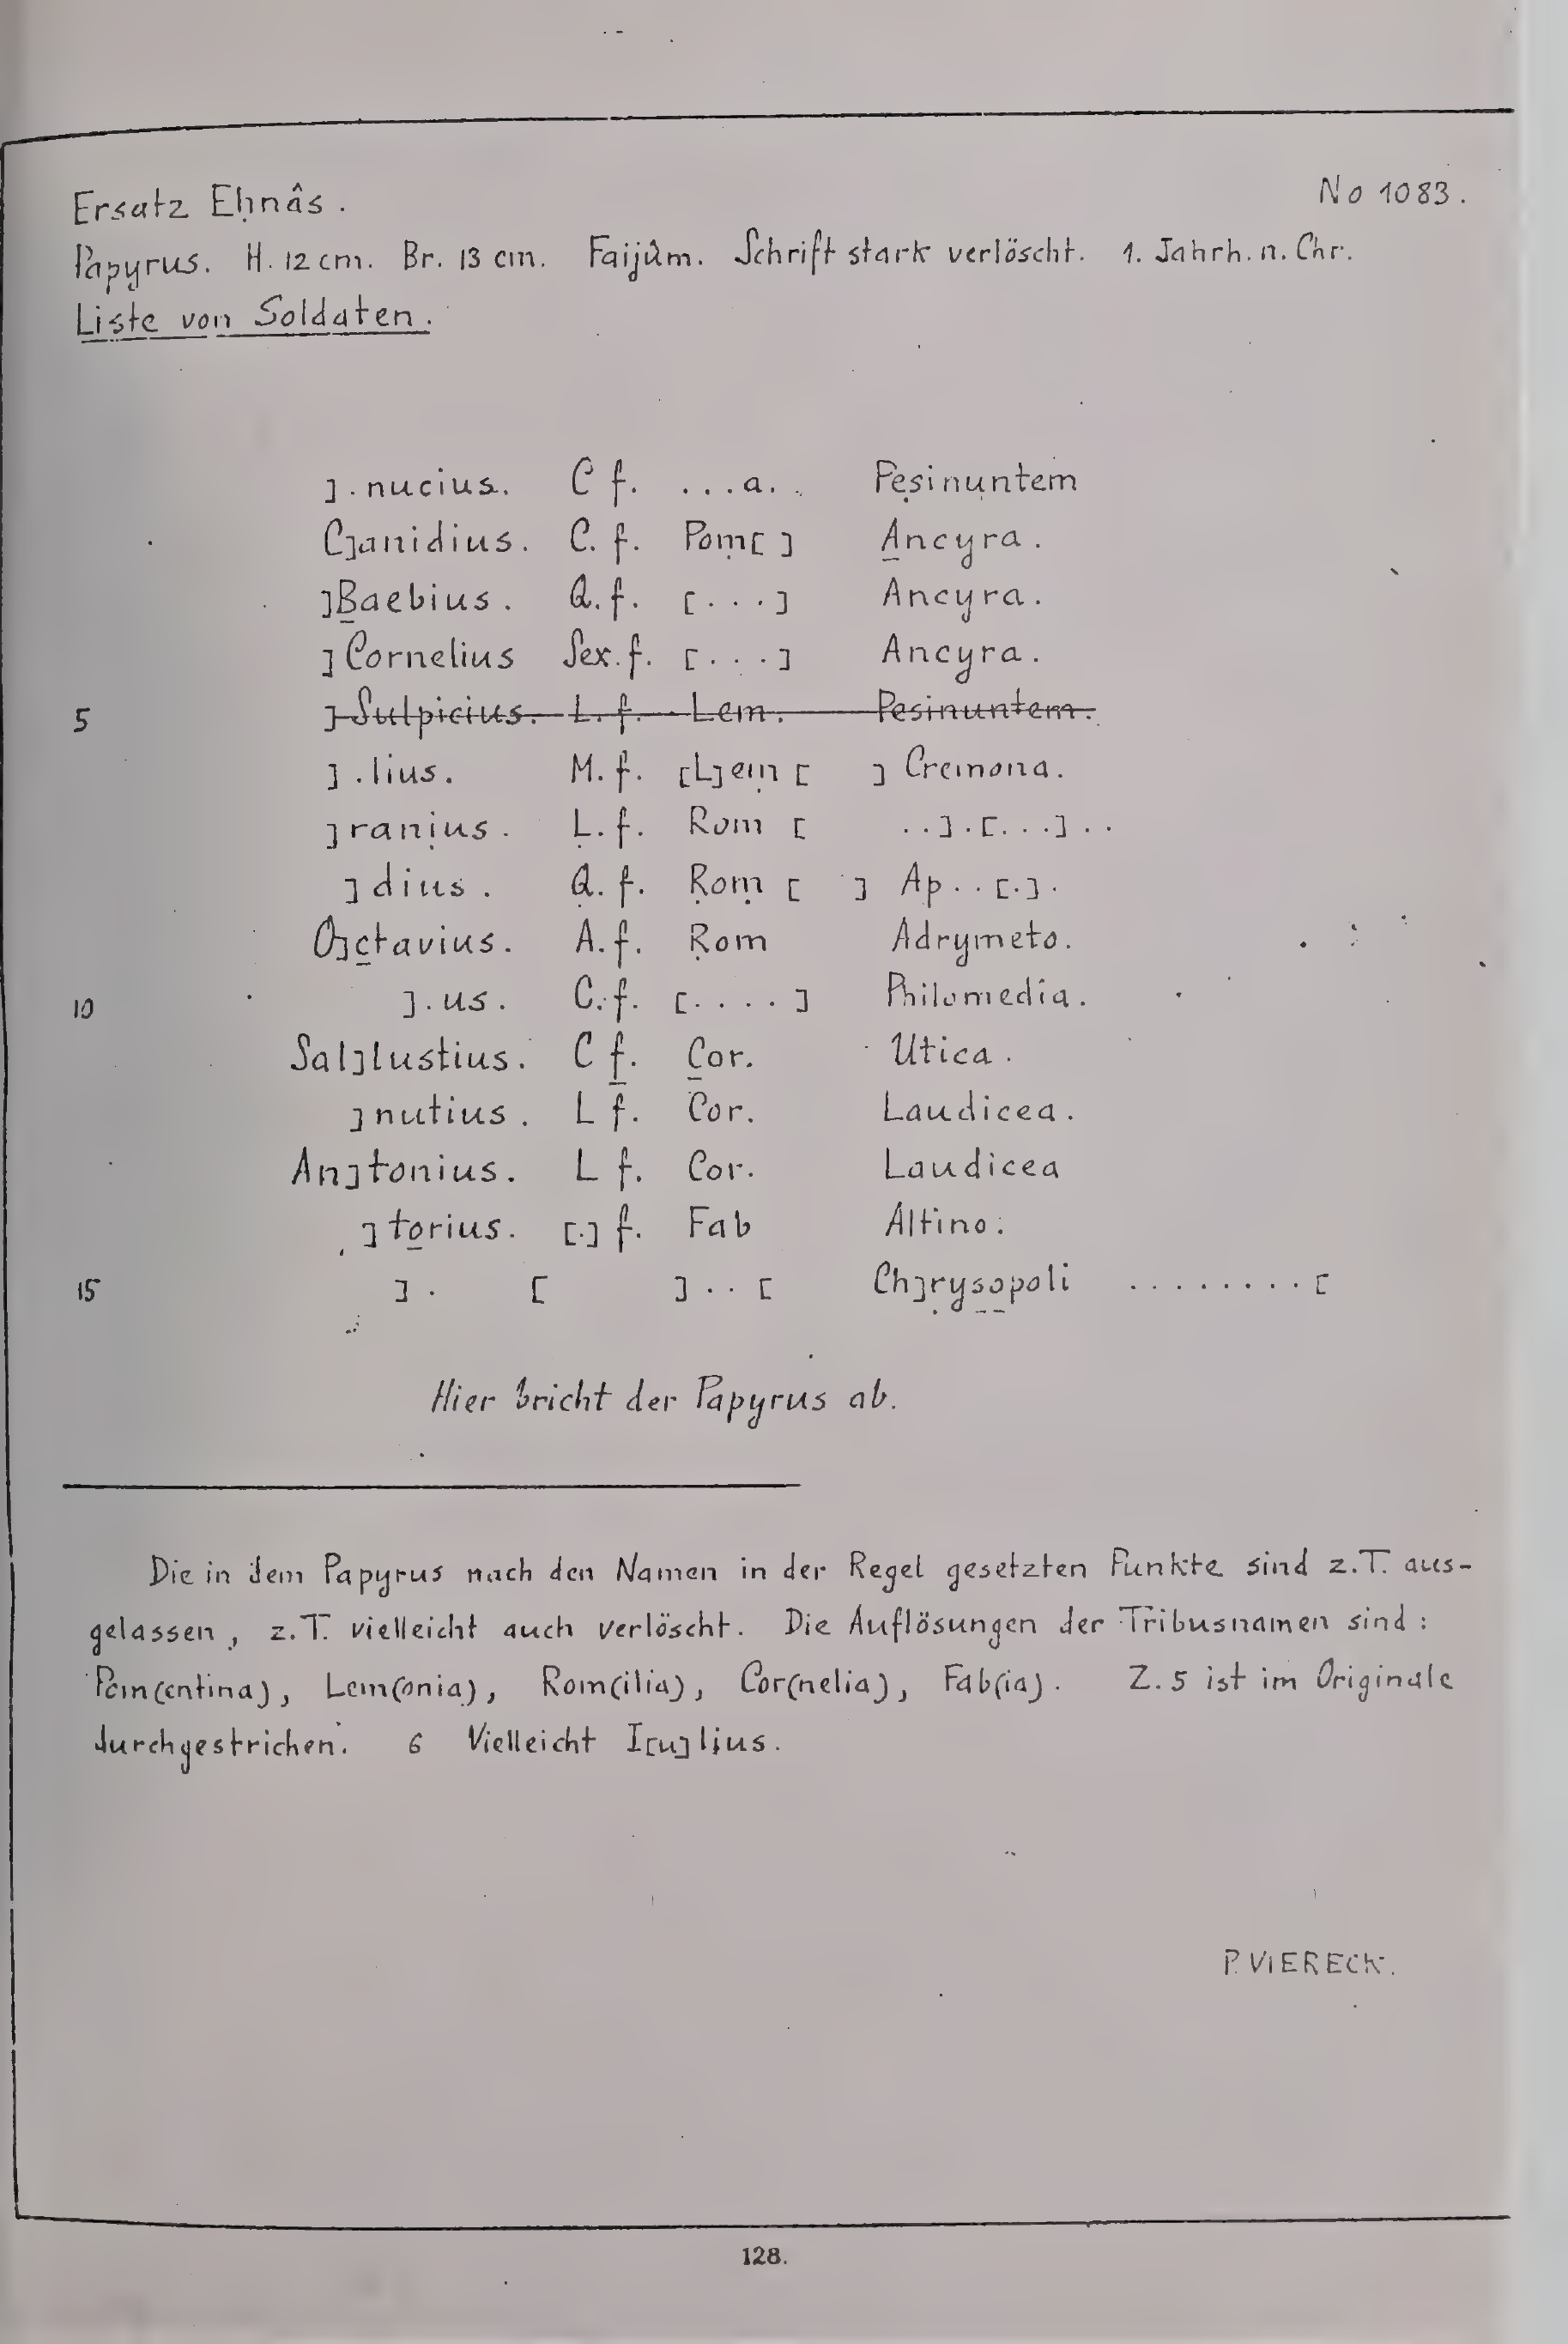 Ersatz Eḥnâs. No 1083.
Papyrus. H. 12 cm. Br. 13 cm. Faijûm. Schrift stark verlöscht. 1. Jahrh. n. Chr.
Liste von Soldaten.
]. nucius. C f. ...a.. Pẹsinụntem
C]anidius. C. f. Poṃ[ ] A̲ncyra.
]B̲aebius. Q. f. [...] Ancyra.
]Cornelius Sex. f. [...] Ancyra.
5 ]Sulpicius. L. f. Lem. Pesinuntem.
] .lius. M. f. [L]eṃ [ ] Cremona.
]ranịus. Ḷ. f. Rom [ ..].[...]..
]dius. Q̣. f. Ṛoṃ [ ] Ap..[.].
O]c̲tavius. A. f. Ṛom Adrymeto.
10 ].us. C. f. [....] Philomedia.
Sal]lustius. C f̲. C̲or. Utica.
]nutius. L f. Cor. Laudicea.
An]tonius. L f. Cor. Laudicea
]to̲rius. [.] f. Fab Altino.
15 ]. [ ].. [ Ch]ṛys̲o̲poli ........[
Hier bricht der Papyrus ab.
Die in dem Papyrus nach den Namen in der Regel gesetzten Punkte sind z.T. aus-
gelassen, z.T. vielleicht auch verlöscht. Die Auflösungen der Tribusnamen sind:
Pom(entina), Lem(onia), Rom(ilia), Cor(nelia), Fab(ia). Z. 5 ist im Originale
durchgestrichen. 6 Vielleicht I[u]lịus.
P. VIERECK.
128.